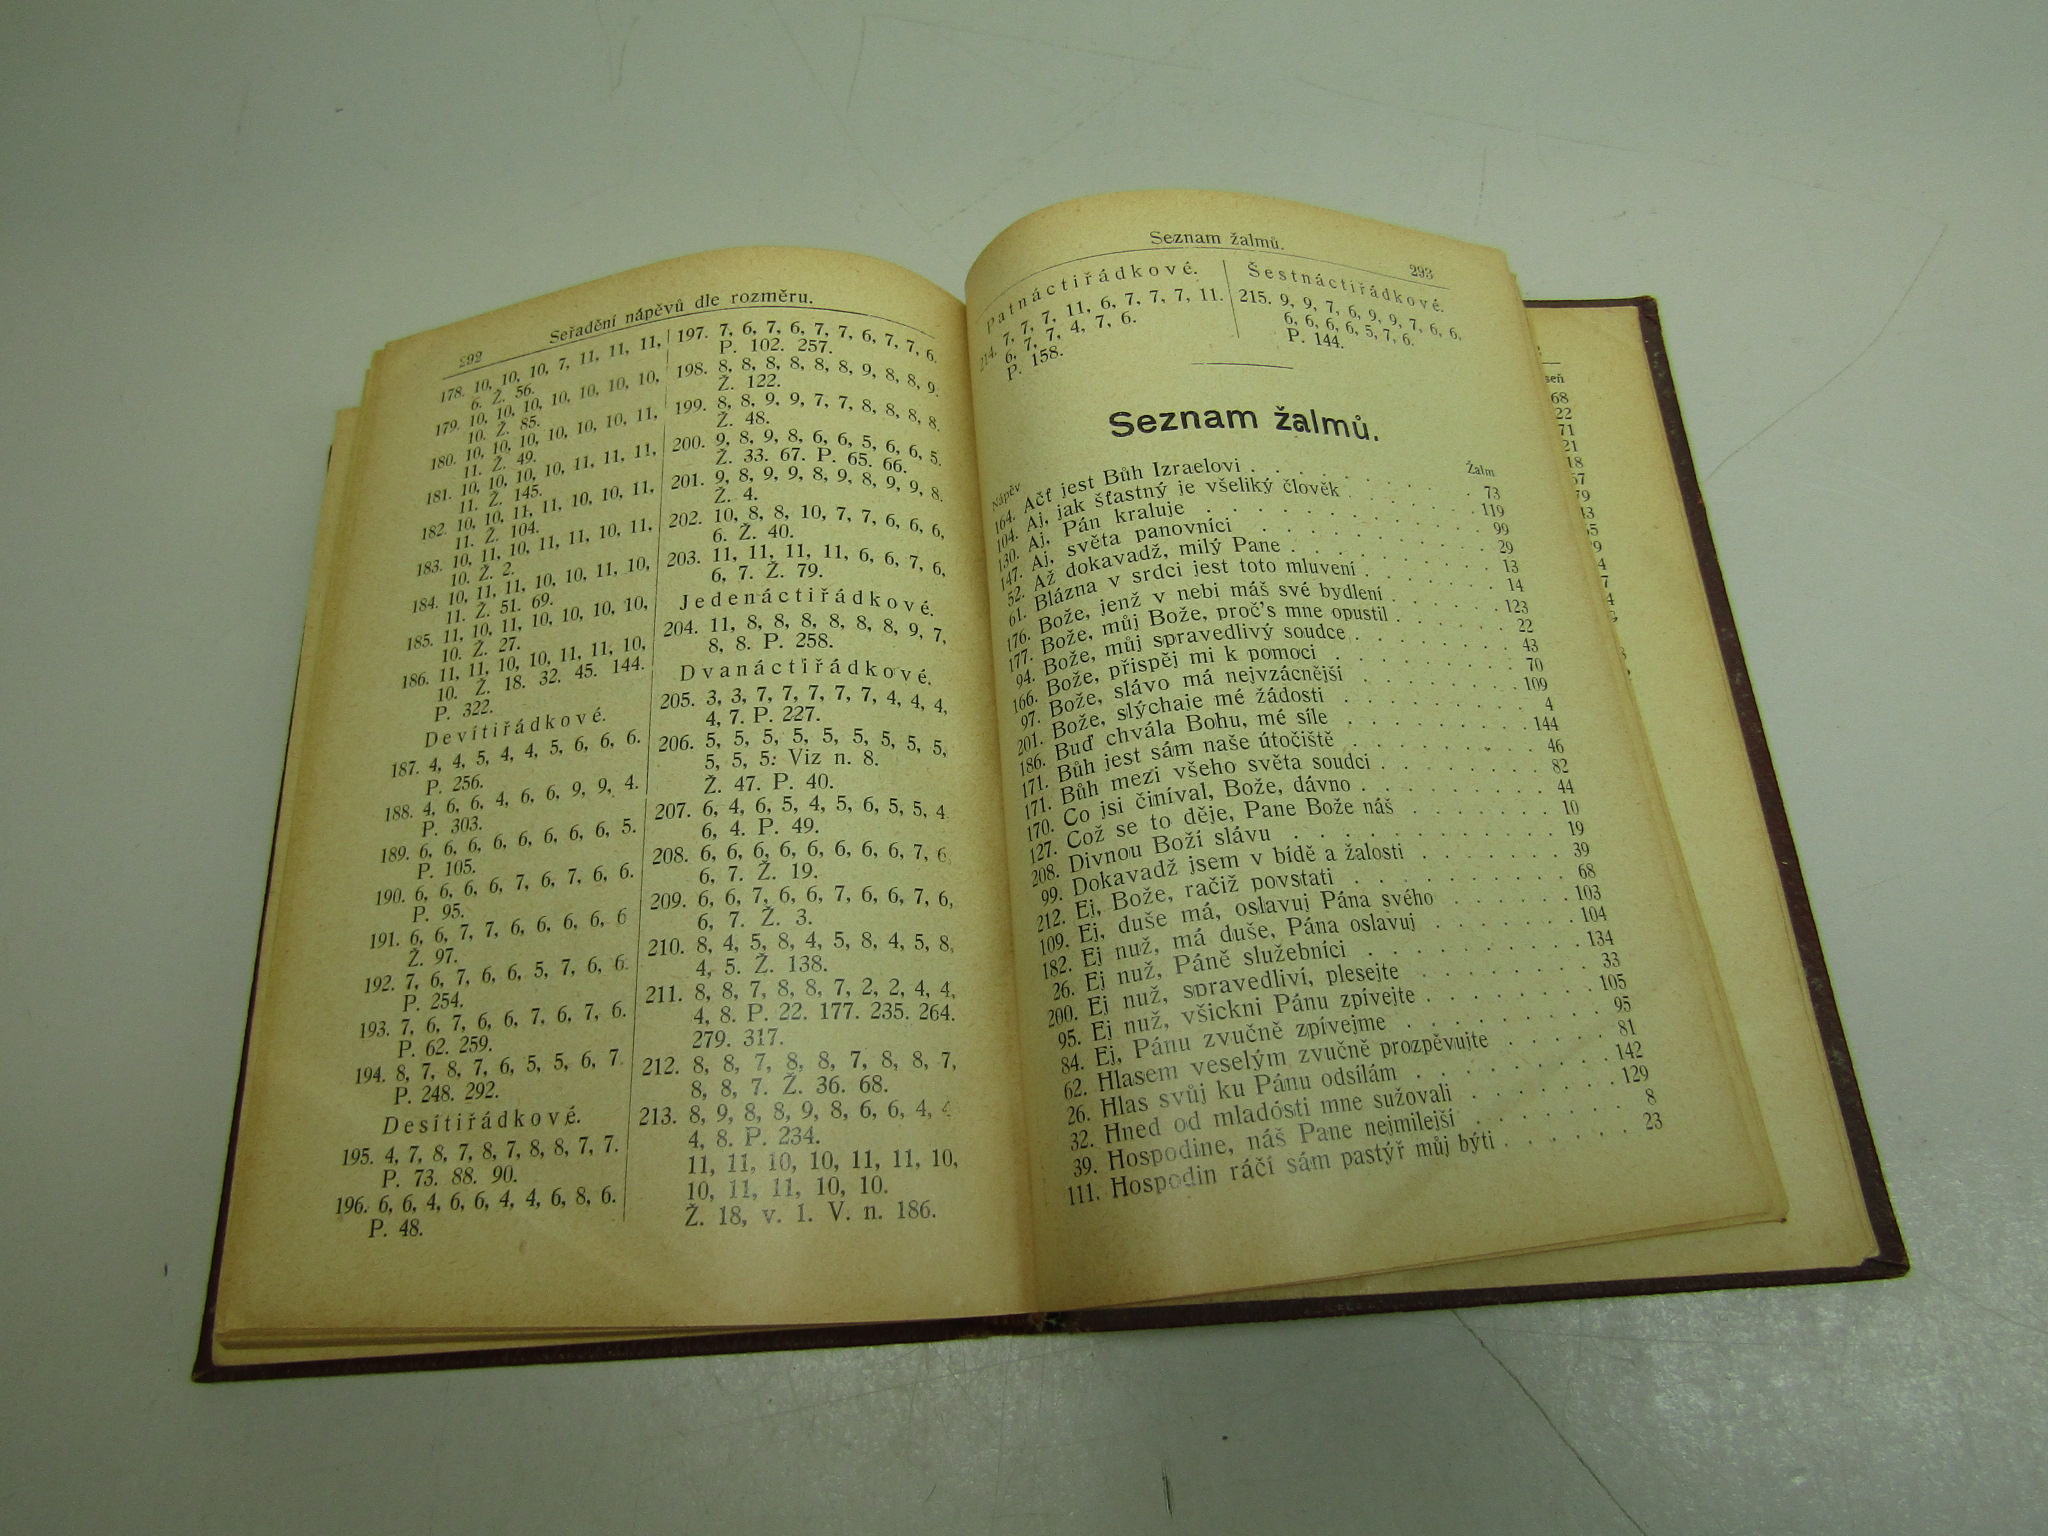 292
Seřadění nápěvů dle rozměru.
178. 10, 10, 10, 7, 11, 11, 11,
6. Ž. 56.
179. 10, 10, 10, 10, 10, 10, 10,
10. Ž. 85.
180. 10, 10, 10, 10, 10, 10, 11,
11. Ž. 49.
181. 10, 10, 10, 10, 11, 11, 11,
11. Ž. 145.
182. 10, 10, 11, 11, 10, 10, 11,
11. Ž. 104.
183. 10, 11, 10, 11, 11, 10, 11,
10. Ž. 2.
184. 10, 11, 11, 10, 10, 11, 10,
11. Ž. 51. 69.
185. 11, 10, 11, 10, 10, 10, 10,
10. Ž. 27.
186. 11, 11, 10, 10, 11, 11, 10,
10. Ž. 18. 32. 45. 144.
P. 322.
Devítiřádkové.
187. 4, 4, 5, 4, 4, 5, 6, 6, 6.
P. 256.
188. 4, 6, 6, 4, 6, 6, 9, 9, 4.
P. 303.
189. 6, 6, 6, 6, 6, 6, 6, 6, 5.
P. 105.
190. 6, 6, 6, 6, 7, 6, 7, 6, 6.
P. 95.
191. 6, 6, 7, 7, 6, 6, 6, 6, 6
Ž. 97.
192. 7, 6, 7, 6, 6, 5, 7, 6, 6.
P. 254.
193. 7, 6, 7, 6, 6, 7, 6, 7, 6.
P. 62. 259.
194. 8, 7, 8, 7, 6, 5, 5, 6, 7.
P. 248. 292.
Desítiřádkové.
195. 4, 7, 8, 7, 8, 7, 8, 8, 7, 7.
P. 73. 88. 90.
196. 6, 6, 4, 6, 6, 4, 4, 6, 8, 6.
P. 48.
197. 7, 6, 7, 6, 7, 7, 6, 7, 7, 6.
P. 102. 257.
198. 8, 8, 8, 8, 8, 8, 9, 8, 8, 9.
Ž. 122.
199. 8, 8, 9, 9, 7, 7, 8, 8, 8, 8.
Ž. 48.
200. 9, 8, 9, 8, 6, 6, 5, 6, 6, 5.
Ž. 33. 67. P. 65. 66.
201. 9, 8, 9, 9, 8, 9, 8, 9, 9, 8.
Ž. 4.
202. 10, 8, 8, 10, 7, 7, 6, 6, 6,
6. Ž. 40.
203. 11, 11, 11, 11, 6, 6, 7, 6,
6, 7. Ž. 79.
Jedenáctiřádkové.
204. 11, 8, 8, 8, 8, 8, 8, 9, 7,
8, 8. P. 258.
Dvanáctiřádkové.
205. 3, 3, 7, 7, 7, 7, 7, 4, 4, 4,
4, 7. P. 227.
206. 5, 5, 5, 5, 5, 5, 5, 5, 5,
5, 5, 5: Viz n. 8.
Ž. 47. P. 40.
207. 6, 4, 6, 5, 4, 5, 6, 5, 5, 4,
6, 4. P. 49.
208. 6, 6, 6, 6, 6, 6, 6, 6, 7, 6,
6, 7. Ž. 19.
209. 6, 6, 7, 6, 6, 7, 6, 6, 7, 6,
6, 7. Ž. 3.
210. 8, 4, 5, 8, 4, 5, 8, 4, 5, 8,
4, 5. Ž. 138.
211. 8, 8, 7, 8, 8, 7, 2, 2, 4, 4,
4, 8. P. 22. 177. 235. 264.
279. 317.
212. 8, 8, 7, 8, 8, 7, 8, 8, 7,
8, 8, 7. Ž. 36. 68.
213. 8, 9, 8, 8, 9, 8, 6, 6, 4, 4
4, 8. P. 234.
11, 11, 10, 10, 11, 11, 10,
10, 11, 11, 10, 10.
Ž. 18, v. 1. V. n. 186.
Seznam žalmů.
293
Patnáctiřádkové.
214. 7, 7, 7, 11, 6, 7, 7, 7, 11.
6, 7, 7, 4, 7, 6.
P. 158.
Šestnáctiřádkové.
215. 9, 9, 7, 6, 9, 9, 7, 6, 6,
6, 6, 6, 6, 5, 7, 6.
P. 144.
Seznam žalmů.
Nápěv Žalm
164. Ačť jest Bůh Izraelovi . . . . . . . 73
104. Aj, jak šťastný je všeliký člověk . . . . . 119
130. Aj, Pán kraluje . . . . . . . . . 99
147. Aj, světa panovníci . . . . . . . . 29
52. Až dokavadž, milý Pane . . . . . . . 13
61. Blázna v srdci jest toto mluvení . . . . . 14
176. Bože, jenž v nebi máš své bydlení . . . . . 123
177. Bože, můj Bože, proč's mne opustil . . . . . 22
94. Bože, můj spravedlivý soudce . . . . . . 43
166. Bože, přispěj mi k pomoci . . . . . . 70
97. Bože, slávo má nejvzácnější . . . . . . 109
201. Bože, slýchaje mé žádosti . . . . . . 4
186. Buď chvála Bohu, mé síle . . . . . . 144
171. Bůh jest sám naše útočiště . . . . . . 46
171. Bůh mezi všeho světa soudci . . . . . . 82
170. Co jsi činíval, Bože, dávno . . . . . . 44
127. Což se to děje, Pane Bože náš . . . . . . 10
208. Divnou Boží slávu . . . . . . . . 19
99. Dokavadž jsem v bídě a žalosti . . . . . . 39
212. Ej, Bože, račiž povstati . . . . . . . 68
109. Ej, duše má, oslavuj Pána svého . . . . . 103
182. Ej nuž, má duše, Pána oslavuj . . . . . 104
26. Ej nuž, Páně služebníci . . . . . . . 134
200. Ej nuž, spravedliví, plesejte . . . . . . 33
95. Ej nuž, všickni Pánu zpívejte . . . . . . 105
84. Ej, Pánu zvučně zpívejme . . . . . . 95
62. Hlasem veselým zvučně prozpěvujte . . . . . 81
26. Hlas svůj ku Pánu odsílám . . . . . . 142
32. Hned od mladósti mne sužovali . . . . . 129
39. Hospodine, náš Pane nejmilejší . . . . . 8
111. Hospodin ráčí sám pastýř můj býti . . . . . 23
seň
68
22
71
21
18